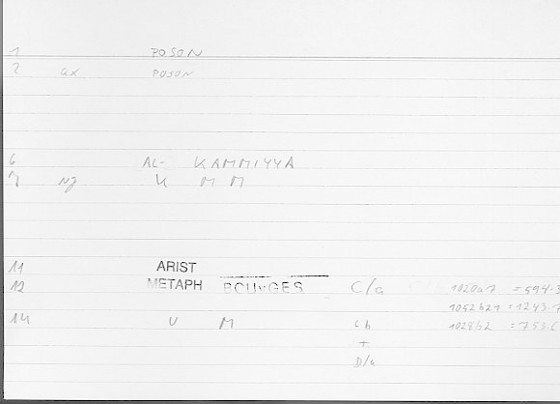 1 POSON
2 GX POSON
6 AL- KAMMIYYA
7 NJ K M M
11 ARIST
12 METAPH BOUYGES C/a 1020a7 = 594.3
1052b21 = 1243.7
14 K M Cb 1028b2 = 753.6
+
D/a